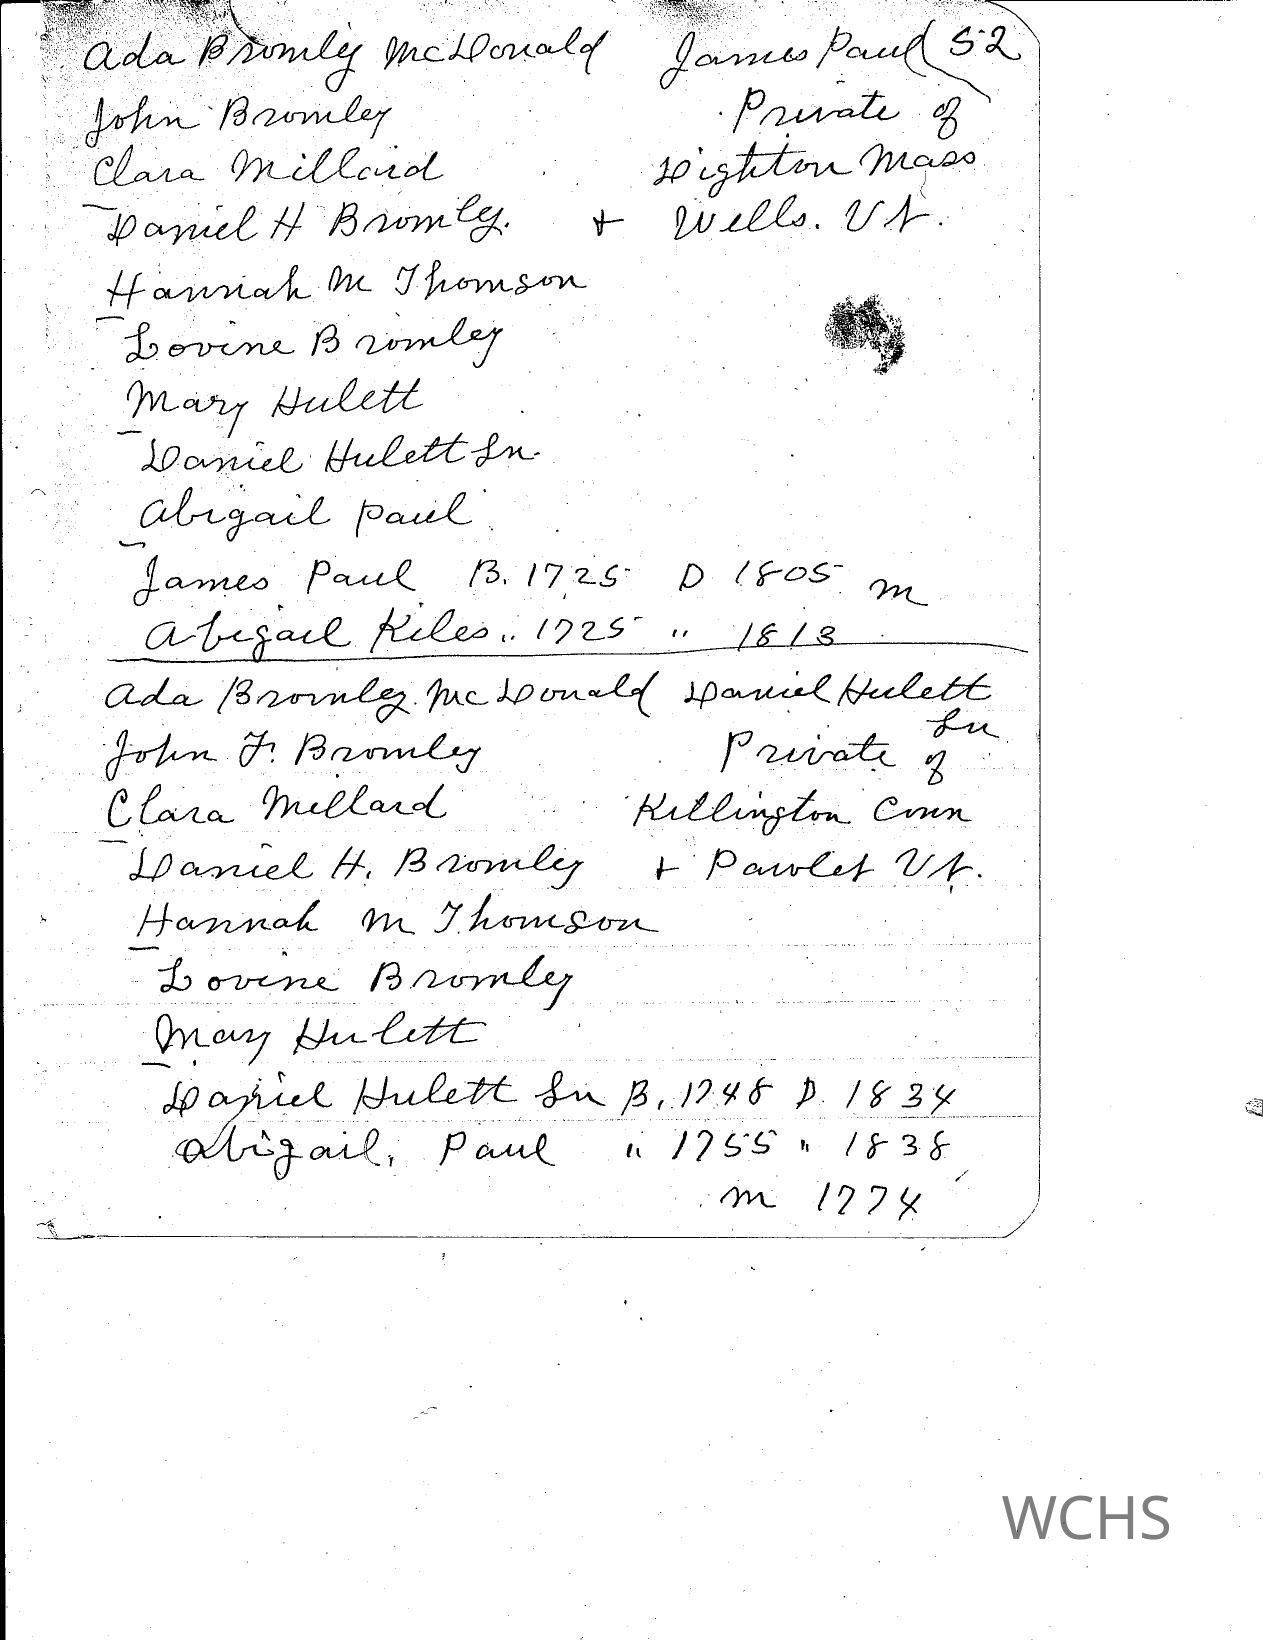 Ada Bromley McDonald James Paul 52
John Bromley Private of
Clara Millard Dighton Mass
Daniel H Bromley. + Wells. Vt.
Hannah M Thomson
Lovine Bromley
Mary Hulett
Daniel Hulett Sn.
Abigail Paul
James Paul B. 1725 D 1805 m
Abigail Kiles " 1725 " 1813
Ada Bromley McDonald Daniel Hulett
Sn
John F. Bromley Private of
Clara Millard Killington Conn
Daniel H. Bromley + Pawlet Vt.
Hannah M Thomson
Lovine Bromley
Mary Hulett
Daniel Hulett Sn B. 1748 D. 1834
Abigail, Paul " 1755 " 1838
m 1774
WCHS